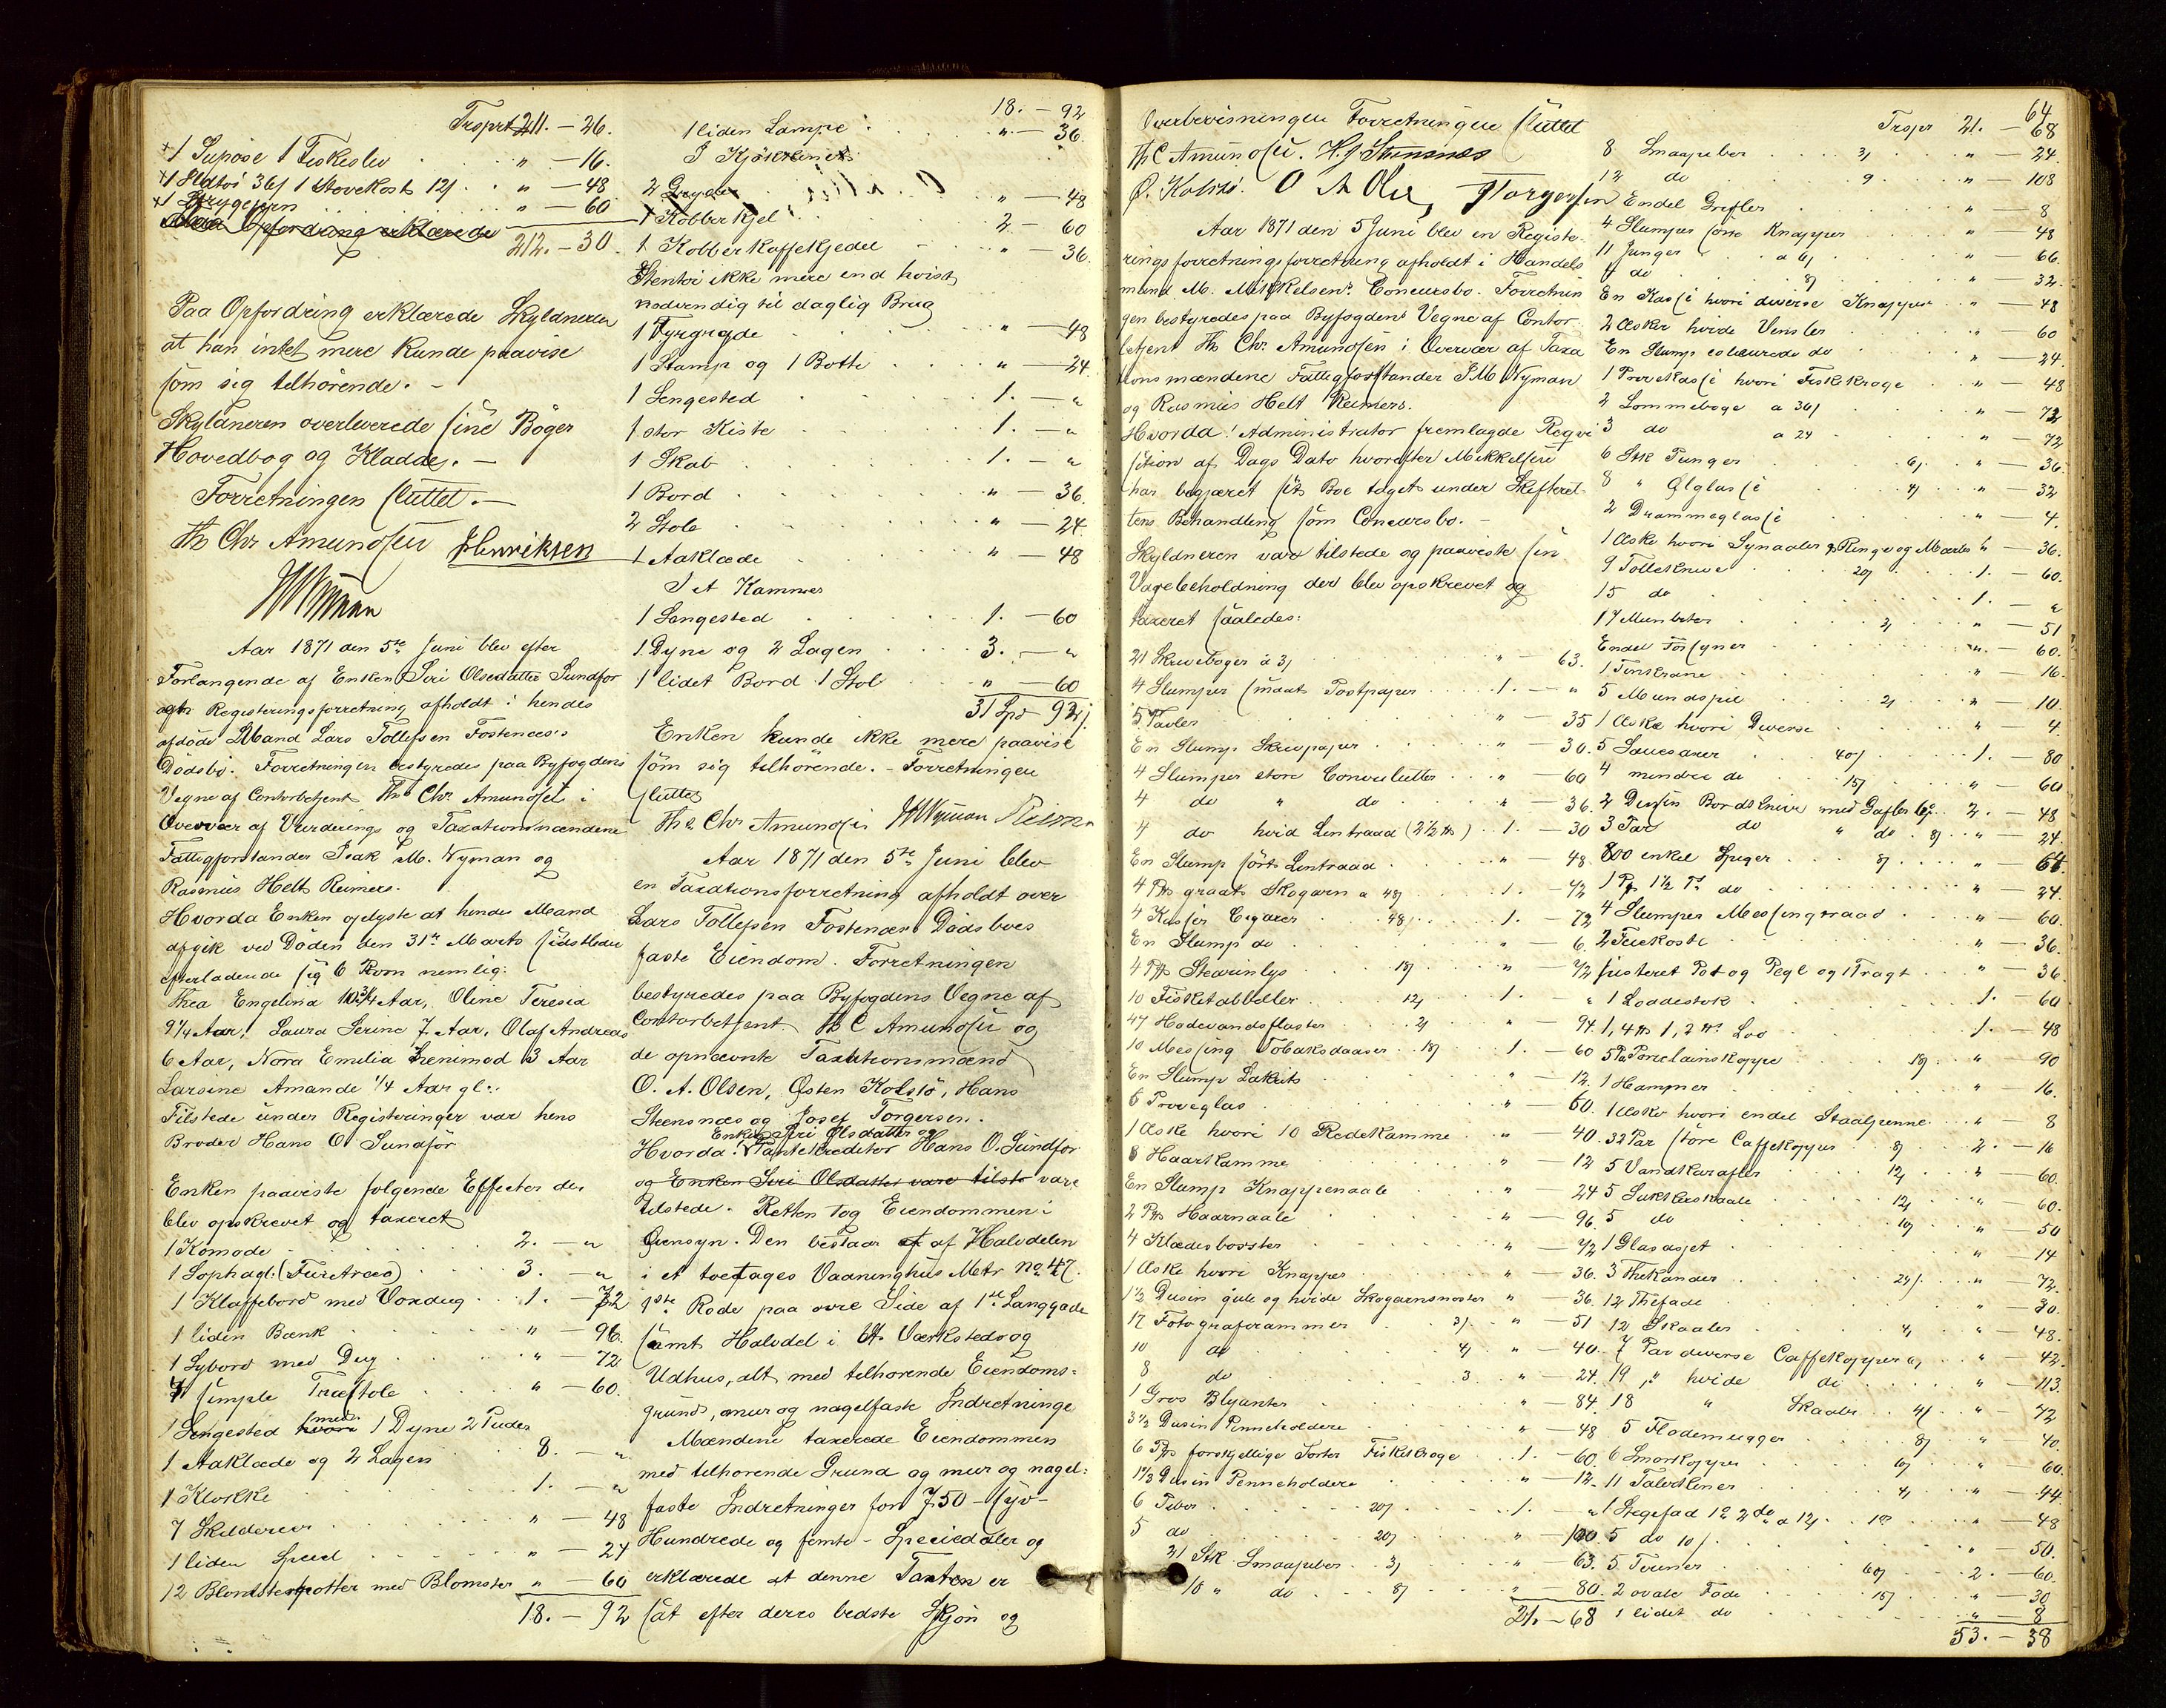 Trsprt 211. - 26.
1 Supøse 1 Fiskeslev " - 16.
1 Ildtøi 36/ 1 Stovekost 12/ " - 48
1 Strygejern " - 60
Paa Opfordring erklærede
212. - 30.
Paa Opfordring erklærede Skyldneren
at han intet mere kunde paavise
som sig tilhørende. -
Skyldneren overleverede sine Bøger
Hovedbog og Kladde. -
Forretningen sluttet. -
Th Chr Amundsen JHenriksen
JMNyman
Aar 1871 den 5te Juni blev efter
Forlangende af Enken Siri Olsdatter Sundfør
Registeringsforretning afholdt i hendes
afdøde Mand Lars Tollefsen Fostenes's
Dødsbo. Forretningen bestyredes paa Byfogdens
Vegne af Contorbetjent Th Chr Amundsen i
Overvær af Vurderings og Taxationsmændene
Fattigforstander Isak M. Nyman og
Rasmus Helt Reimers.
Hvorda Enken oplyste at hendes Mand
afgik ved Døden den 31te Marts sidstleden
efterladende sig 6 Børn nemlig:
Thea Engelina 10 3/4 Aar, Oline Teresia
9 1/4 Aar, Laura Serine 7 Aar, Olaf Andreas
6 Aar, Nora Emilia 3 Aar
Larsine Amande 1/4 Aar gl.:
Tilstede under Registeringen var hens
Broder Hans O Sundfør
Enken paaviste følgende Effecter der
blev opskrevet og taxeret
1 Komode 2. - "
1 Sophagl. (Furetræs) 3. - "
1 Klaffebord med Voxdug 1. - 72
1 liden Bænk " - 96.
1 Sybord med Dug " - 72
4 simple Træstole " - 60.
1 Sengested hvori med 1 Dyne 2 Puder
1 Aaklæde og 2 Lagen 8. - "
1 Klokke 1. - "
7 Skilderier " - 48
1 liden Speil " - 24
12 Blomsterpotter med Blomster " - 60
18. - 92
18. - 92
1 liden Lampe " - 36.
I Kjøkkenet
2 Gryder " - 48
1 Kobberkjel 2 - 60
1 Kobberkaffekjedel " - 36.
Stentøi ikke mere end høist
nødvendig til daglig Brug
1 Fyrgryde " - 48
1 Stamp og 1 Botte " - 24
1 Sengested 1. - "
1 stor Kiste 1. - "
1 Skab 1. - "
1 Bord " - 36.
2 Stole " - 24
1 Aaklæde " - 48
I et Kammer
1 Sengested 1. - 60
1 Dyne og 2 Lagen 3. - "
1 lidet Bord 1 Stol " - 60
31 Spd 92/.
Enken kunde ikke mere paavise
som sig tilhørende. - Forretningen
sluttet
Th Chr Amundsen JMNyman Reimers
Aar 1871 den 5te Juni blev
en Taxationsforretning afholdt over
Lars Tollefsen Fostenæs Dødsboes
faste Eiendom. Forretningen
bestyredes paa Byfogdens Vegne af
Contorbetjent Th C Amundsen og
de opnævnte Taxtionsmænd
O. A. Olsen, Østen Kolstø, Hans
Steensnæs og Josef Torgersen.
Enken Siri Olsdatter og
Hvorda: Pantekreditor Hans O. Sundfør
og Enken Siri Olsdatter vare tilste vare
tilstede. Retten tog Eiendommen i
Øiensyn. Den bestaar af af Halvdelen
i et toetages Vaaninghus Metr No. 47.
1ste Rode paa øvre Side af 1ste Langgade
samt Halvdel i et Værksteds og
Udhus, alt med tilhørende Eiendoms=
grund, mur og nagelfaste Indretninge
Mændene taxerede Eiendommen
med tilhørende Grund og mur og nagel=
faste Indretninger for 750 - syv-
Hundrede og femti - Speciedaler og
erklærede at denne Taxten er
sat efter deres bedste Skjøn og
Overbevisningen Forretningen sluttet
Th C Amundsen. H.J. Stensnæs
Ø. Kolstø. O A Olsen, JTorgersen
Aar 1871 den 5 Juni blev en Registe-
ringsforretningsforretning afholdt i Handels
mand M. Mikkelsens Concursbo. Forretnin
gen bestyredes paa Byfogdens Vegne af Contor
betjent Th Chr. Amundsen i Overvær af Taxa
tionsmændene Fattigforstander IM Nyman
og Rasmus Helt Reimers.
Hvorda! Administrator fremlagde Reqvi
sition af Dags Dato hvorefter Mikkelsen
har begjæret sit Boe taget under Skifteret
tens Behandling som Concursbo. -
Skyldneren var tilstede og paaviste sin
Varebeholdning der blev opskrevet og
taxeret saaledes:
21 Skrivebøger à 3/ " - 63.
4 Slumper smaat Postpaper 1. - "
5 Tavler " - 35
En Slump Skrivpaper " - 30.
4 Slumper store Convulutter " - 60
4 do " do " - 36.
4 do hvid Lintraad (2 1/2 ℔) 1. - 30
En Slump sort Lintraad " - 48.
4 ℔ graat Skogarn a 48/ 1. - 72
4 Kasser Cigarer 48/ 1. - 72
En Slump do " - 6.
4 ℔ Stearinlys 18/ " - 72
10 Fisketabeller 12/ 1. - "
47 Hodevandsflasker 2/ " - 94.
10 Messing Tobaksdaaser 18/ 1. - 60
En Slump Lakrits " - 12.
6 Prøveglas " - 60.
1 Æske hvori 10 Redekamme " - 40.
8 Haarkamme " - 12
En Slump Knappenaale " - 24
2 ℔ Haarnaale " - 96.
4 Klædesbørster " - 72
1 Æske hvori Knapper " - 36.
1 1/2 Dusin gule og hvide Skogarnsnøster " - 36.
17 Fotograferammer 3/ " - 51
10 do 4/ " - 40.
8 do 3 " - 24.
1 Gros Blyanter " - 84.
3 1/2 Dusin Penneholdere " - 48
6 ℔ forskjellige Sorter Fiskekroge 1. - 60.
1 1/3 Dusin Penneholdere " - 12.
6 Piber 20/ 1. - "
5 do 20/ " - 100.
21 Stk Smaapiber 3/ " - 63.
10 " do 8/ " - 80.
21. - 68
64
Trspr 21. - 68
8 Smaapiber 3/ " - 24.
12 do 9 " - 108
Endel Grifler " - 8
4 Slumper sorte Knapper " - 48
11 Junger a 6/ " - 66.
4 do 8/ " - 32.
En Kasse hvori diverse Knapper " - 48
2 Æsker hvide Vensler " - 60
En Slump coleurede do " - 24.
1 Prøvekasse hvori Fiskekroge " - 48
2 Lommebøge a 36/ " - 72
3 do a 24 " - 72
6 Stk Punger 6/ " - 36
8 " Ølglasse 4/ " - 32
2 Drammeglasse " - 4.
1 Æske hvori Synaaler Ringe og Mærler " - 36.
9 Tolleknive 20/ 1. - 60.
15 do 1. - "
17 Munbiter 3/ " - 51
Endel Forsyner " - 60.
1 Tinskrane " - 16.
5 Mundspil 2/ " - 10.
1 Æske hvori Diverse " - 4
5 Sauesaxer 40/ 1. - 80
4 mindre do 15/ " - 60
2 Dusin Bordkniver med Gafler 2. - 48
3 Par do " do 8/ " - 24.
800 enkel Spiger 8/ " - 64.
1 P 1 1/2 P do " - 24
4 Slumper Messingtraad " - 60.
2 Feiekoste " - 36.
justeret Pot og Pegl og 1 Tragt " - 36
1 Loddestok 1. - 60
1, 4 ℔ 1, 2 ℔ Lod 1. - 48
5 Porclainskoppe 18/ " - 90
1 Hammer " - 16.
1 Æske hvori endel Staalpenne " - 8
32 Par store Caffekopper 8/ 2. - 16
5 Vandkarafler 12/ " - 60.
5 Sukkerskaale 12/ " - 60.
5 do 10/ " - 50
1 Glasasjet " - 14
3 Thekander 24/ " - 72.
12 Thefade " - 30.
12 Skaaler 4/ " - 48.
7 Par diverse Caffekopper 6/ " - 42.
19 " hvide do " - 113.
18 " Skaaler 4/ " - 72
5 Flødemugger 8/ " - 40.
6 Smørkopper 10/ " - 60.
11 Talerkener 4/ " - 44.
1 Stegefad a 12/ " - 48
5 do 10/ " - 50.
5 Teriner 60/ 2. - 60.
2 ovale Fade 15/ " - 30
1 lidet do " - 8
53. - 38